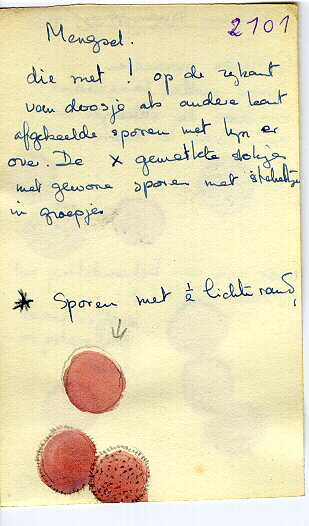 2101
Mengsel.
die met ! op de zykant
van doosje als andere kant
afgebeelde sporen met lyn er
over. De x gemerkte stokjes
met gewone sporen met stekeltjes
in groepjes
* Sporen met ½ lichte rand,